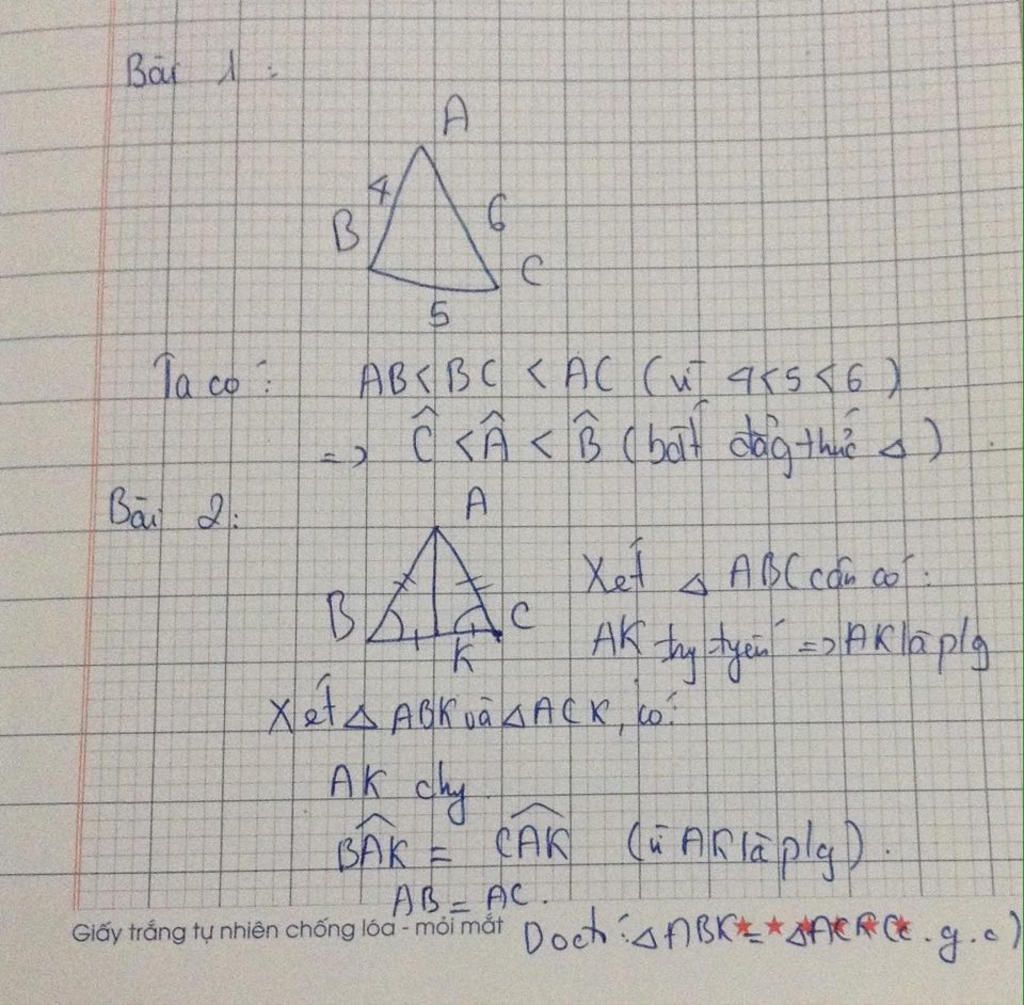 Bài 1:
A
4
6
B
C
5
Ta có: AB < BC < AC (vì 4<5<6)
=> Ĉ < Â < B̂ (bất đẳg thức Δ).
Bài 2:
A
Xét Δ ABC cân có:
B
C
K
AK try tyến => AK là p/g
Xét Δ ABK và Δ ACK, có:
AK chy
BAK = CAK (vì AK là p/g).
AB = AC.
Giấy trắng tự nhiên chống lóa - mỏi mắt
Do đó: ΔABK = ΔACK (c.g.c)